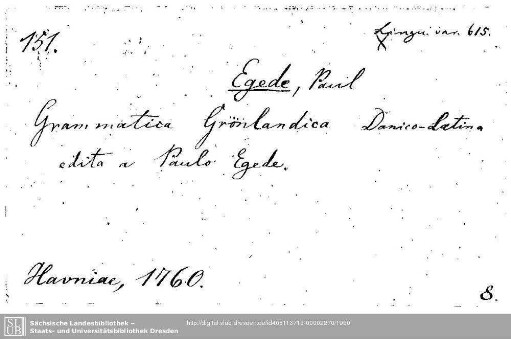 151.
Lingu. var. 615.
Egede, Paul
Grammatica Grönlandica Danico-Latina
edita a Paulo Egede.
Havniae, 1760.
8.
SLUB
Sächsische Landesbibliothek –
Staats- und Universitätsbibliothek Dresden